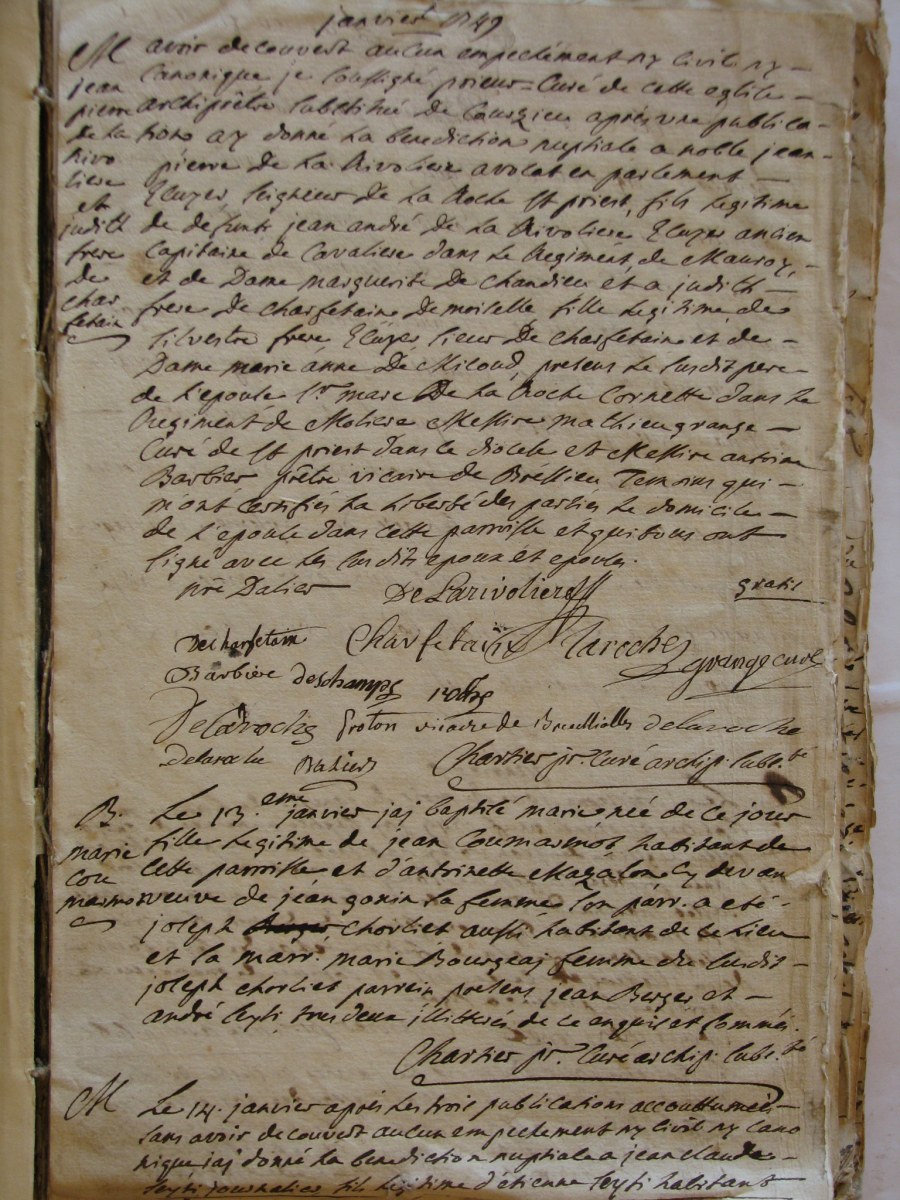 janvier 1749
M
jean
pierre
de la
Rivo
liere
et
judith
frere
de
char
fetain
avoir decouvert aucun empechement ny civil ny
canonique je soussigné prieur-Curé de cette eglise
archiprêtre substitué de Courzieu aprés une publica-
tion ay donné la benediction nuptiale a noble jean-
pierre de la Rivoliere avocat en parlement
Ecuyer, seigneur de la Roche st priest, fils legitime
de defunts jean andré de la Rivoliere Ecuyer ancien
capitaine de Cavalerie dans le Regiment de Mauroy,
et de Dame marguerite de chandieu et a judith
frere de charfetain demoiselle fille legitime de
silvestre frere Ecuyer sieur de charfetain et de
Dame marie anne de Micoud, presens le susdit pere
de l'epouse, sr. marc De la Roche Cornette dans le
Regiment de Moliere Messire mathieu grange
Curé de st priest dans le diocese et Messire antoine
Barbier prêtre vicaire de Brussieu Temoins qui
m'ont certifiés la liberté des parties le domicile
de l'epouse dans cette parroisse et qui tous ont
signé avec les susdits epoux et epouse.
De Larivoliere gratis
Decharfetain Charfetain Laroche
grange curé
Barbier deschamps
Delaroche vicaire de delaroche
delaroche Chartier pr. Curé archip. subs.té
B.
marie
cou
masmot
Le 13.eme janvier jaj baptisé marie née de ce jour
fille legitime de jean Coumasmot habitant de
cette parroisse et d'antoinette Magalon cy devan
veuve de jean gonin sa femme, son parr. a eté
joseph chorliet aussi habitant de ce lieu
et la marr. marie Bourgeaj femme du susdit
joseph chorliet parrein presens jean Berger et
andré seyti, tous deux illitterés de ce enquis et sommés.
Chartier pr. Curé archip. subs.té
M
Le 14. janvier aprés les trois publications accouttumées
sans avoir decouvert aucun empechement ny civil ny cano
nique jaj donné la benediction nuptiale a jean claude
seyti journalier fils legitime d'étienne seyti habitant